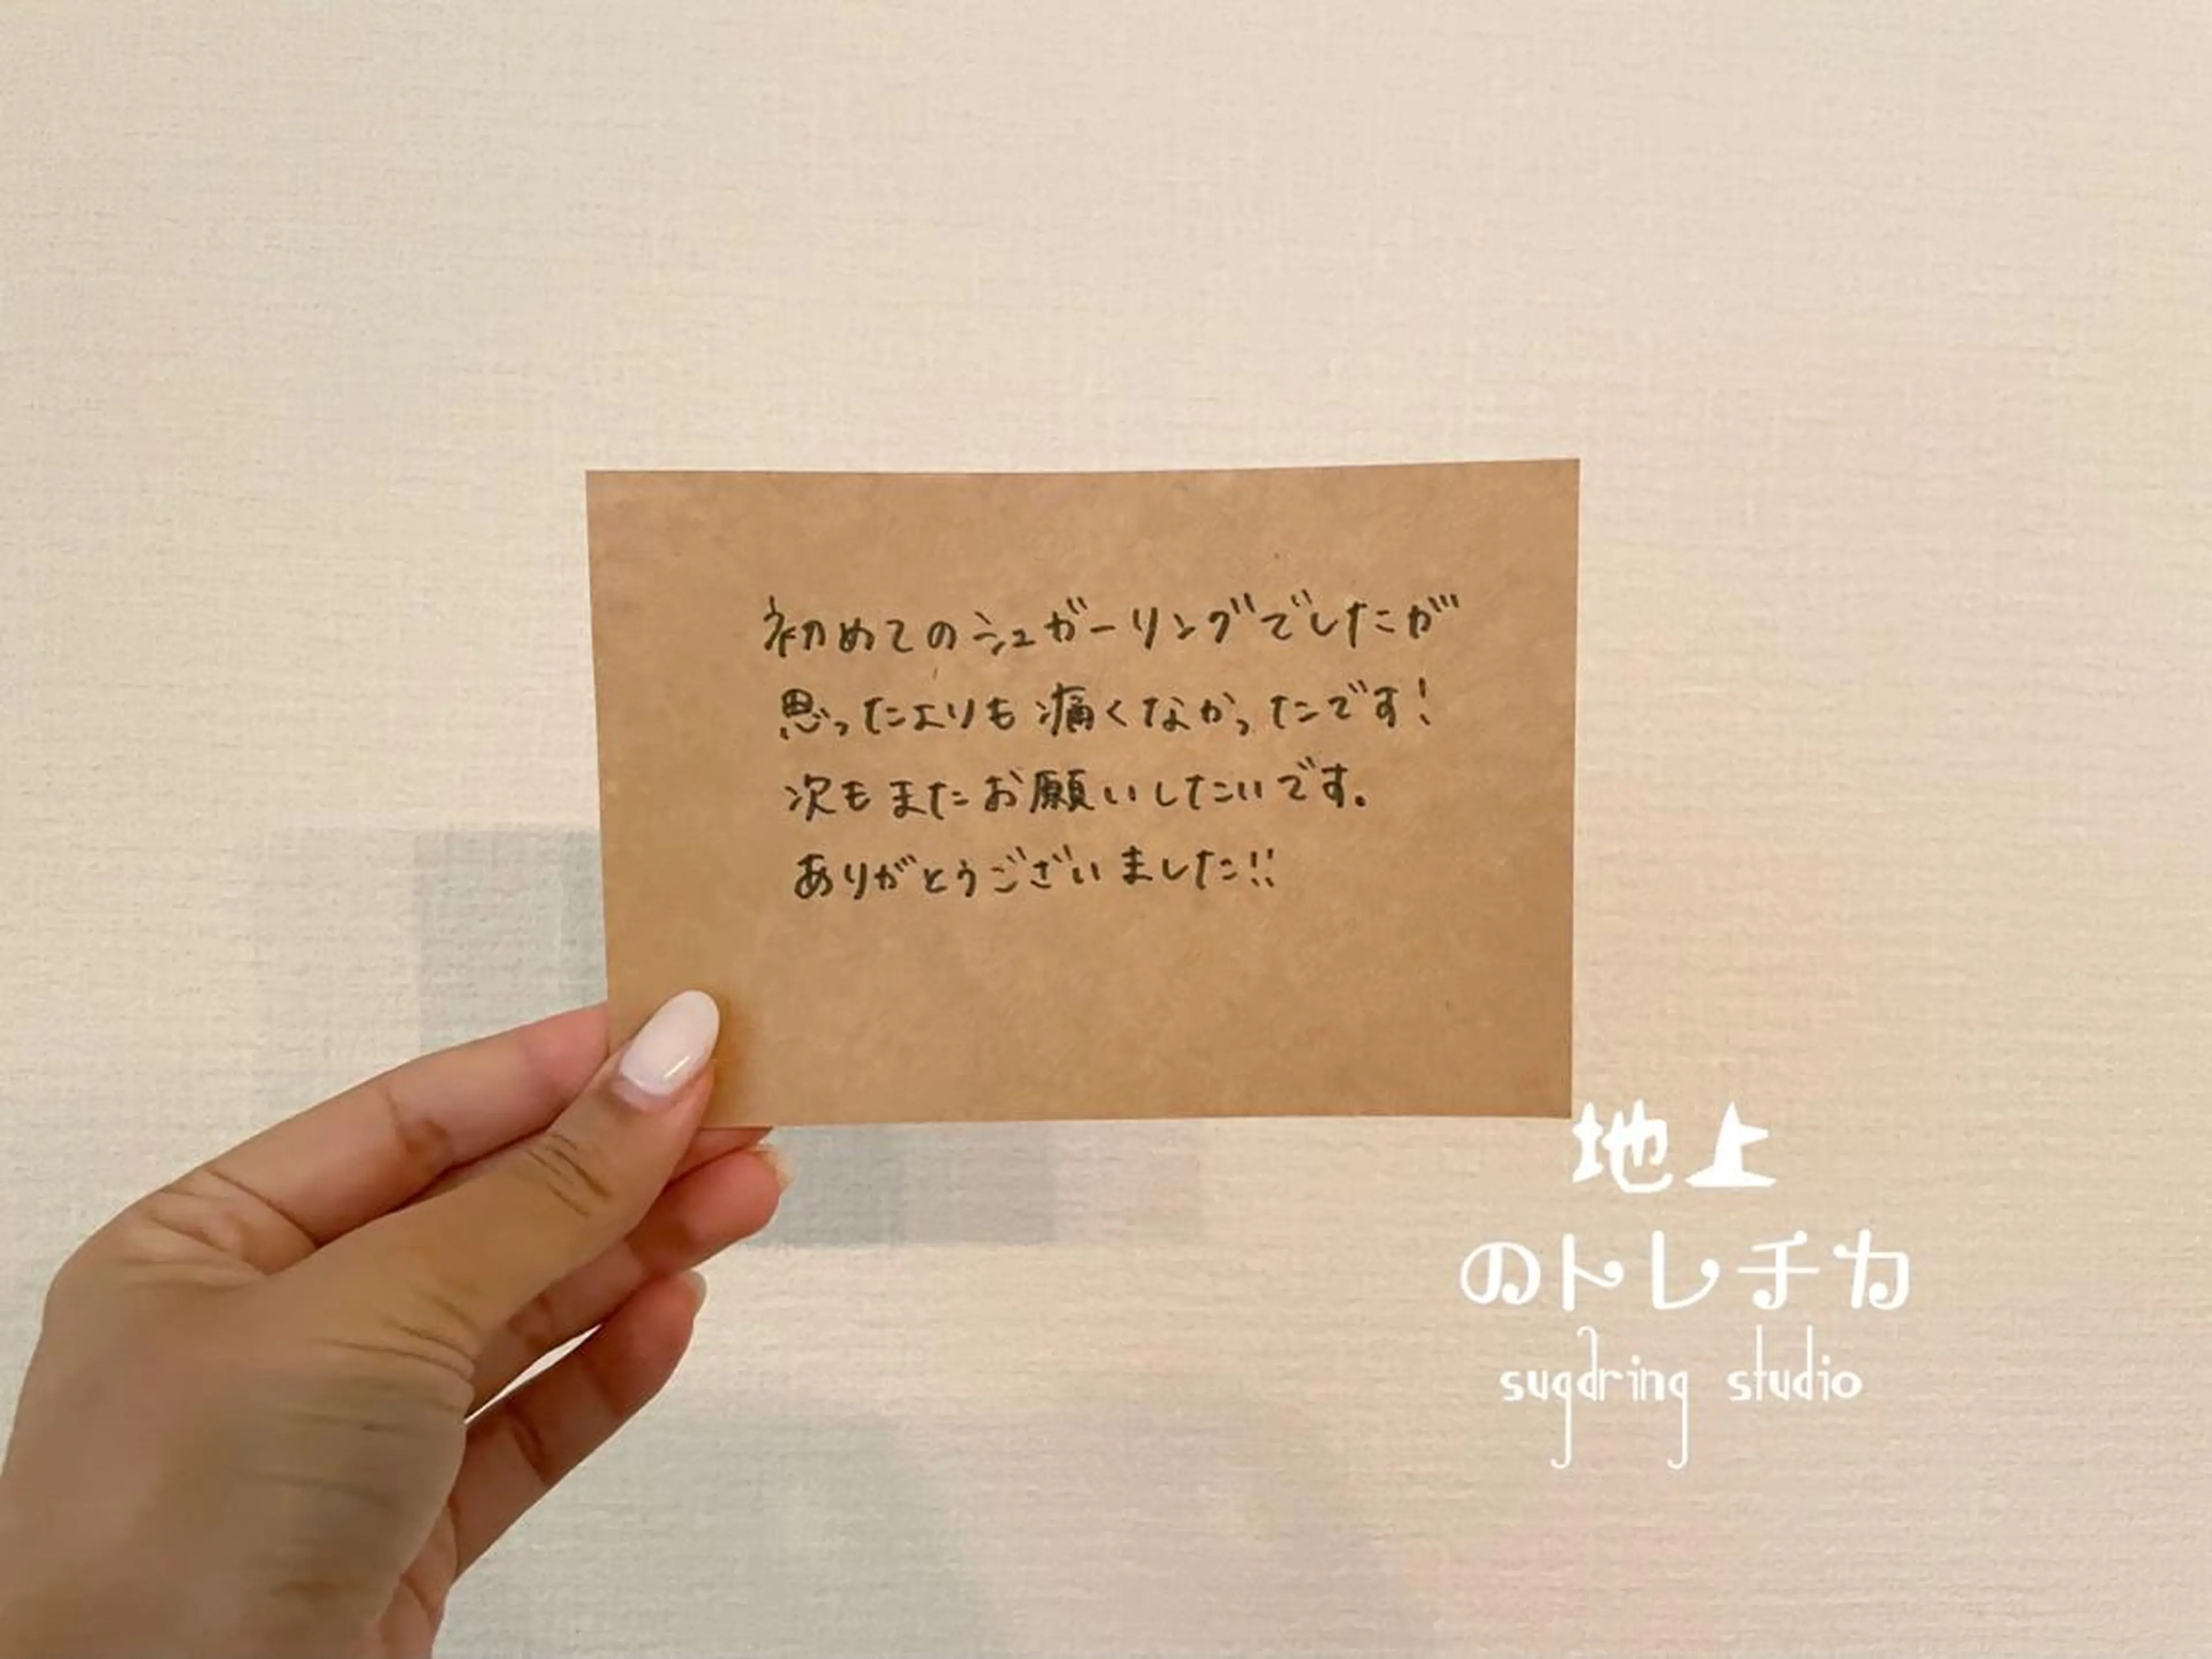 初めてのシュガーリングでしたが
思ったよりも痛くなかったです!
次もまたお願いしたいです。
ありがとうございました!!
地上
のトレチカ
sugaring studio